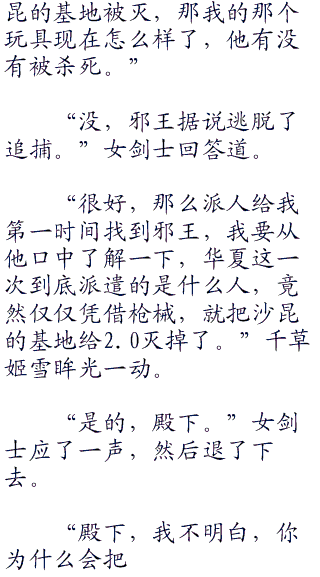 昆的基地被灭，那我的那个
玩具现在怎么样了，他有没
有被杀死。”
“没，邪王据说逃脱了
追捕。”女剑士回答道。
“很好，那么派人给我
第一时间找到邪王，我要从
他口中了解一下，华夏这一
次到底派遣的是什么人，竟
然仅仅凭借枪械，就把沙昆
的基地给2.0灭掉了。”千草
姬雪眸光一动。
“是的，殿下。”女剑
士应了一声，然后退了下
去。
“殿下，我不明白，你
为什么会把